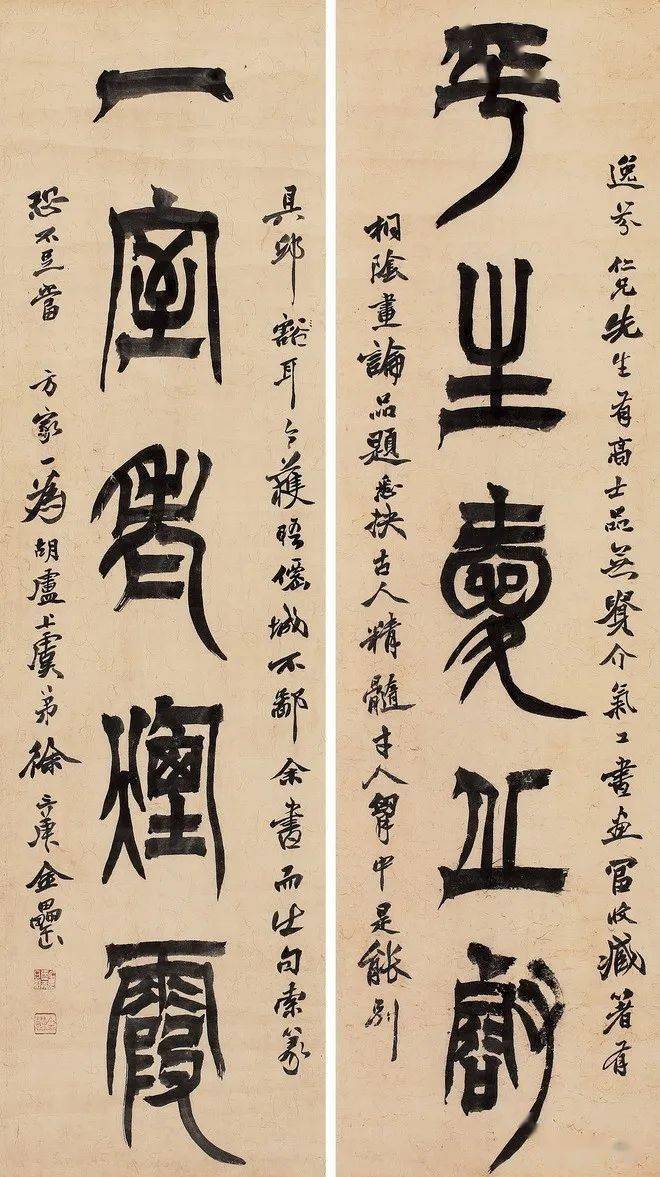 逸芬仁兄先生有高士品無介氣工書画富收藏著有
平生愛丘壑
桐陰畫論品題悉抉古人精髓才人胸中是能別
具邱豁耳今獲晤僊城不鄙余書而出句索篆
一室老煙霞
恐不足當方家一為胡盧上虞弟徐三庚金罍